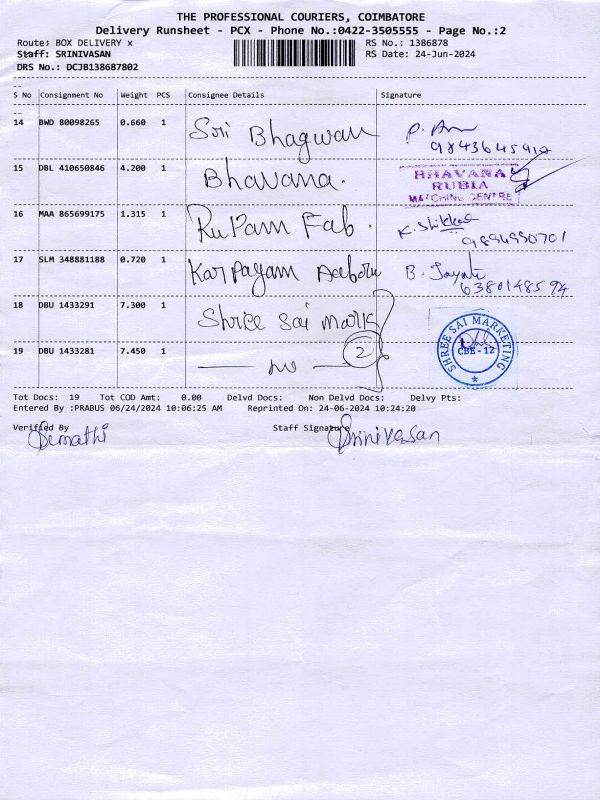 THE PROFESSIONAL COURIERS, COIMBATORE
Delivery Runsheet - PCX - Phone No.:0422-3505555 - Page No.:2
Route: BOX DELIVERY x RS No.: 1386878
Staff: SRINIVASAN RS Date: 24-Jun-2024
DRS No.: DCJB138687802
S No Consignment No Weight PCS Consignee Details Signature
14 BWD 80098265 0.660 1 Sri Bhagwan
9843645912
15 DBL 410650846 4.200 1 Bhavana. BHAVANA
RUBIA
MATCHING CENTRE
16 MAA 865699175 1.315 1 RuPam Fab.
9894990701
17 SLM 348881188 0.720 1 Karpagam B. Jayanthi
6380148594
18 DBU 1433291 7.300 1 Shree Sai Mark SHREE SAI MARKETING
CBE - 12
19 DBU 1433281 7.450 1 2
Tot Docs: 19 Tot COD Amt: 0.00 Delvd Docs: Non Delvd Docs: Delvy Pts:
Entered By :PRABUS 06/24/2024 10:06:25 AM Reprinted On: 24-06-2024 10:24:20
Verified By Staff Signature
Srinivasan